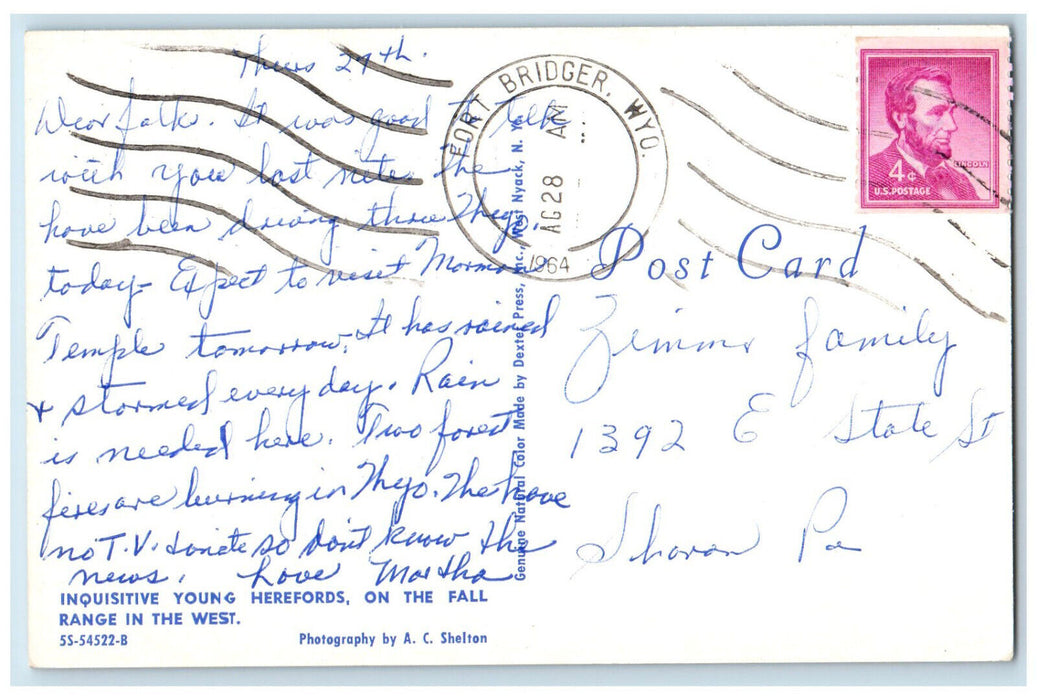 Thurs 27th.
Dear folk. It was good to talk
with you last nite. We
have been driving thru Wyo.
today - Expect to visit Mormon
Temple tomorrow. It has rained
+ stormed every day. Rain
is needed here. Two forest
fires are burning in Wyo. We have
no T.V. tonite so don't know the
news. Love Martha
INQUISITIVE YOUNG HEREFORDS, ON THE FALL
RANGE IN THE WEST.
5S-54522-B
Photography by A. C. Shelton
Genuine Natural Color Made by Dexter Press, Inc., West Nyack, N. Y.
FORT BRIDGER, WYO.
AG28 AM
1964
LINCOLN
4¢
U.S. POSTAGE
Post Card
family
1392 E State St
Sharon Pa